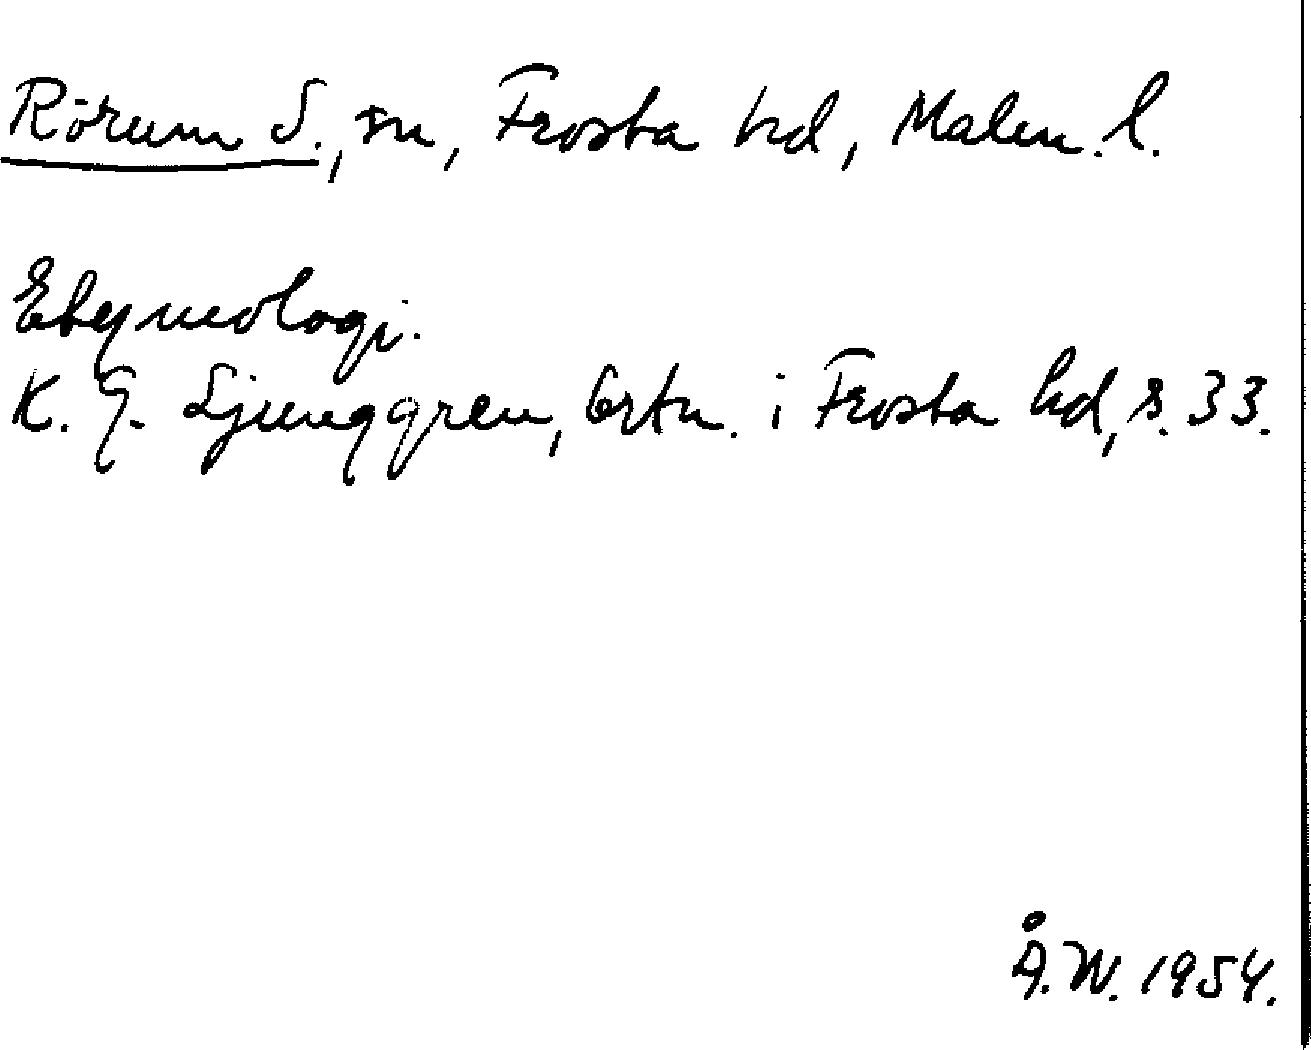 Rörum S., sn, Frosta hd, Malm. l.
Etymologi.
K. G. Ljunggren, Ortn. i Frosta hd, s. 33.
Å. W. 1954.